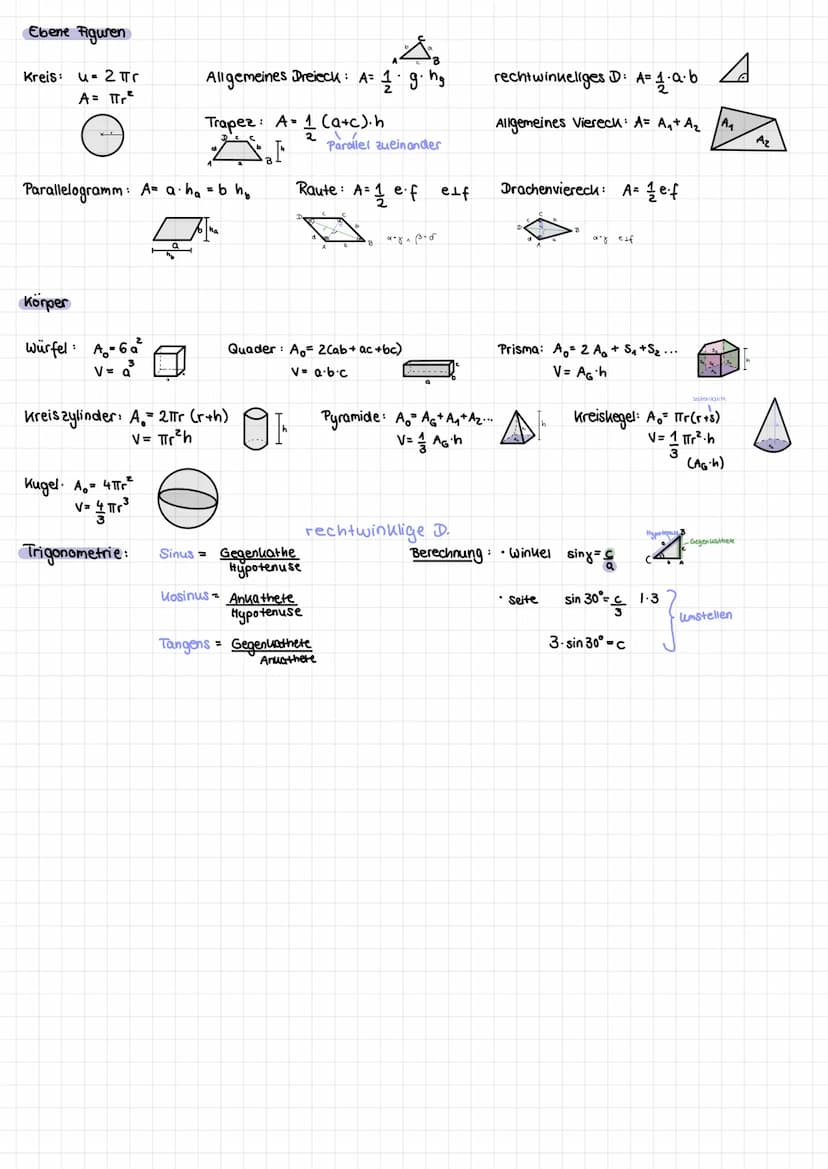 Ebene Figuren
Kreis: u = 2πr
A = πr²
Allgemeines Dreieck: A = 1/2 · g · hg
C
b a
A c B
rechtwinkeliges D: A = 1/2 · a · b
Trapez: A = 1/2 (a+c) · h
Parallel zueinander
D c C
d b h
A a B
Allgemeines Viereck: A = A₁ + A₂
A₁
A₂
Parallelogramm: A = a · ha = b hb
b ha
a
hb
Raute: A = 1/2 e·f e⊥f
α=γ ∧ β=δ
Drachenviereck: A = 1/2 e·f
α=γ e⊥f
Körper
Würfel: A₀ = 6a²
V = a³
Quader: A₀ = 2(ab + ac + bc)
V = a·b·c
Prisma: A₀ = 2 AG + S₁ + S₂ ...
V = AG · h
Kreiszylinder: A₀ = 2πr (r+h)
V = πr²h
h
Pyramide: A₀ = AG + A₁ + A₂...
V = 1/3 AG · h
h
Kreiskegel: A₀ = πr(r+s)
V = 1/3 πr² · h
(AG · h)
Kugel: A₀ = 4πr²
V = 4/3 πr³
rechtwinklige D.
Trigonometrie:
Sinus = Gegenkathe / Hypotenuse
Kosinus = Ankathete / Hypotenuse
Tangens = Gegenkathete / Ankathete
Berechnung: · Winkel sinγ = c/a
Hypotenuse
Gegenkathete
· Seite sin 30° = c/3 | · 3
3 · sin 30° = c
Umstellen